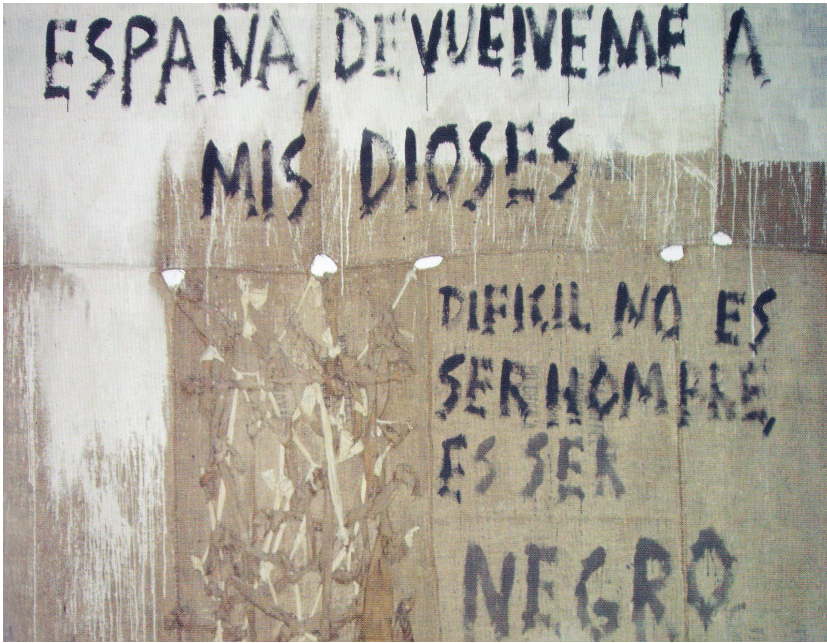 ESPAÑA DEVUELVEME A
MIS DIOSES
DIFICIL NO ES
SER HOMBRE,
ES SER
NEGRO